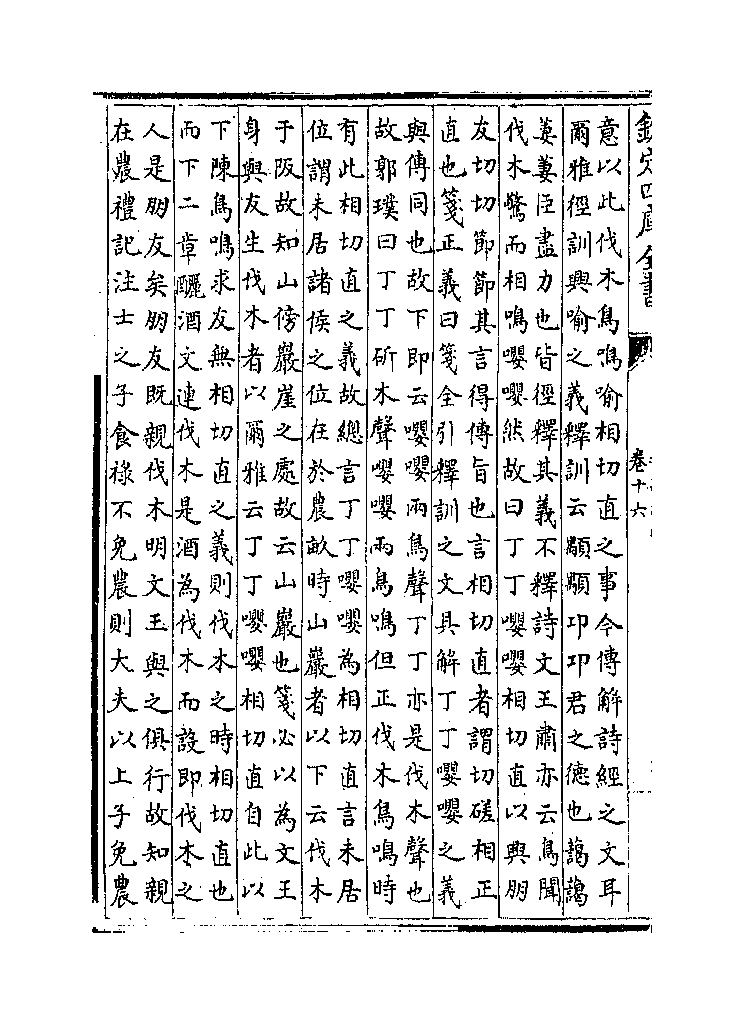 欽定四庫全書
卷十六
意以此伐木鳥鳴喻相切直之事今傳解詩經之文耳
爾雅徑訓興喻之義釋訓云顒顒卬卬君之德也藹藹
萋萋臣盡力也皆徑釋其義不釋詩文王肅亦云鳥聞
伐木驚而相鳴嚶嚶然故曰丁丁嚶嚶相切直以興朋
友切切節節其言得傳旨也言相切直者謂切磋相正
直也箋正義曰箋全引釋訓之文具解丁丁嚶嚶之義
與傳同也故下即云嚶嚶兩鳥聲丁丁亦是伐木聲也
故郭璞曰丁丁斫木聲嚶嚶兩鳥鳴但正伐木鳥鳴時
有此相切直之義故總言丁丁嚶嚶為相切直言未居
位謂未居諸侯之位在於農畝時山巖者以下云伐木
于阪故知山傍巖崖之處故云山巖也箋必以為文王
身與友生伐木者以爾雅云丁丁嚶嚶相切直自此以
下陳鳥鳴求友無相切直之義則伐木之時相切直也
而下二章釃酒文連伐木是酒為伐木而設即伐木之
人是朋友矣朋友既親伐木明文王與之俱行故知親
在農禮記注士之子食祿不免農則大夫以上子免農